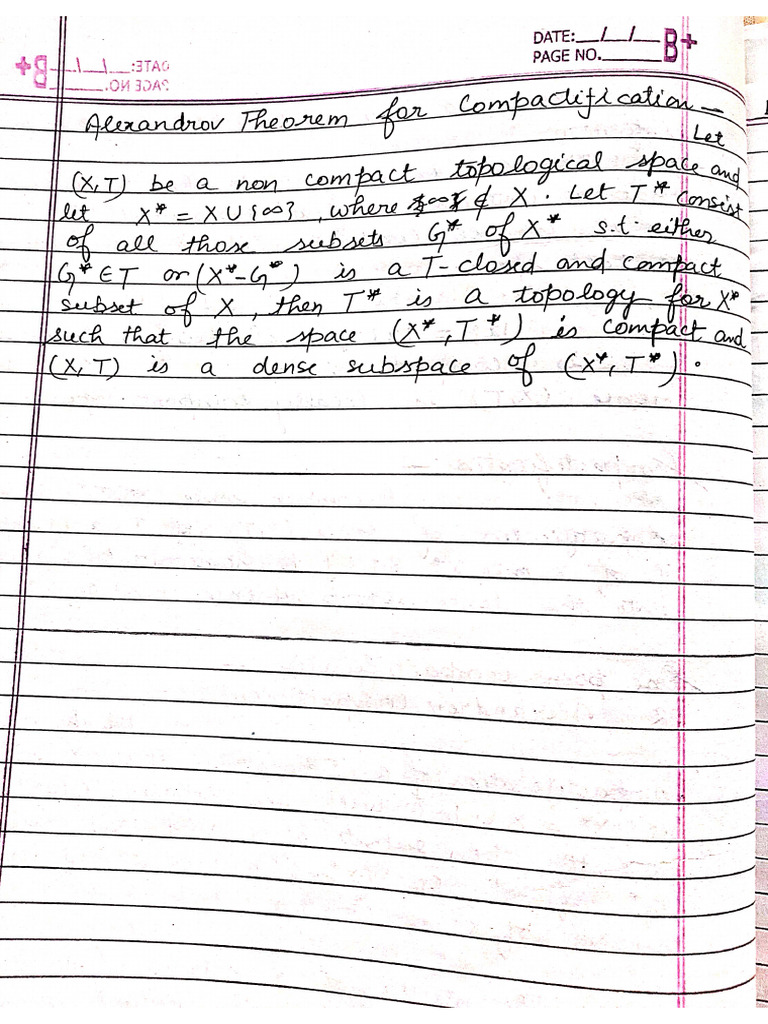 DATE:__/__/__
PAGE NO.______
Alexandrov Theorem for Compactification —
Let
(X,T) be a non compact topological space and
let X* = X ∪ {∞}, where ∞ ∉ X. Let T* consist
of all those subsets G* of X* s.t. either
G* ∈ T or (X*-G*) is a T-closed and compact
subset of X, then T* is a topology for X*
such that the space (X*, T*) is compact and
(X, T) is a dense subspace of (X*, T*).